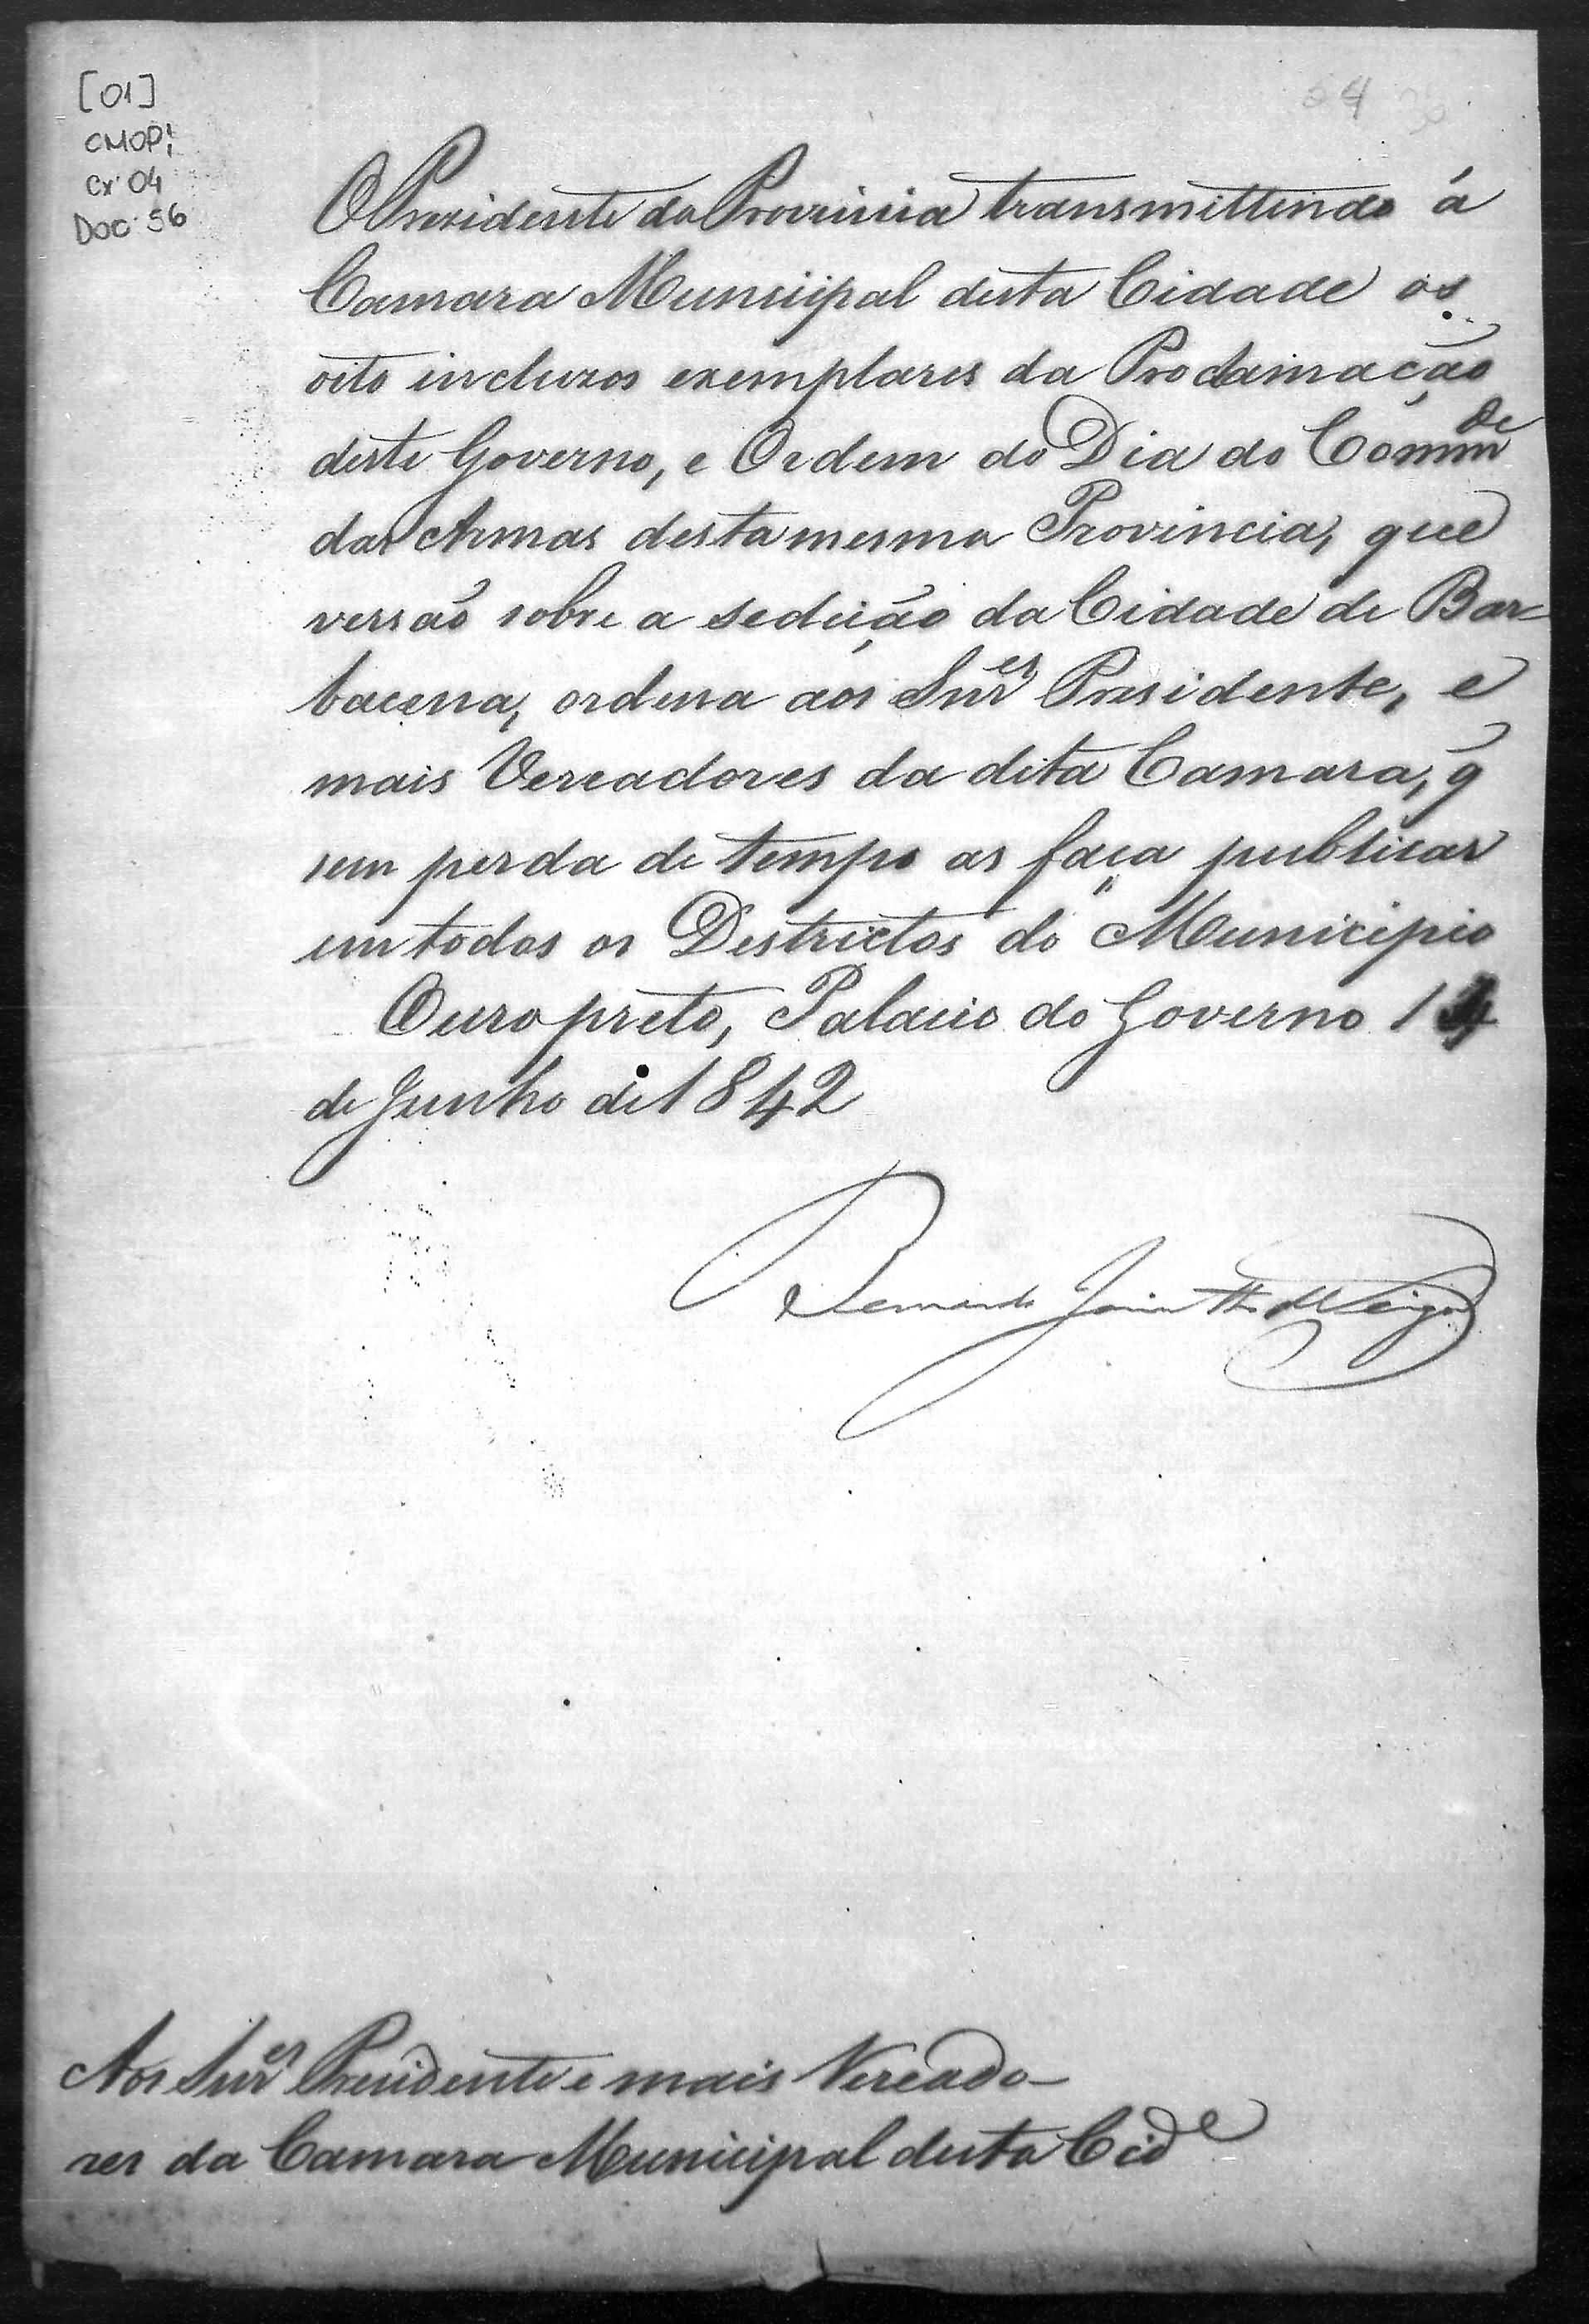 [01]
CMOP:
Cx: 04
Doc: 56
O Prezidente da Provincia transmittindo á
Camara Municipal desta Cidade os
oito incluzos exemplares da Proclamação
deste Governo, e Ordem do Dia do Comm.de
das Armas desta mesma Provincia, que
versaõ sobre a sedicão da Cidade de Bar-
bacena, ordena aos Snres Presidente, e
mais Vereadores da dita Camara, q̃
sem perda de tempo as faça publicar
em todos os Destrictos do Municipio
Ouro preto, Palacio do Governo
de Junho de 1842
Bernardo Jacintho da Veiga
Aos Snres Presidente e mais Vereado-
res da Camara Municipal desta Cide